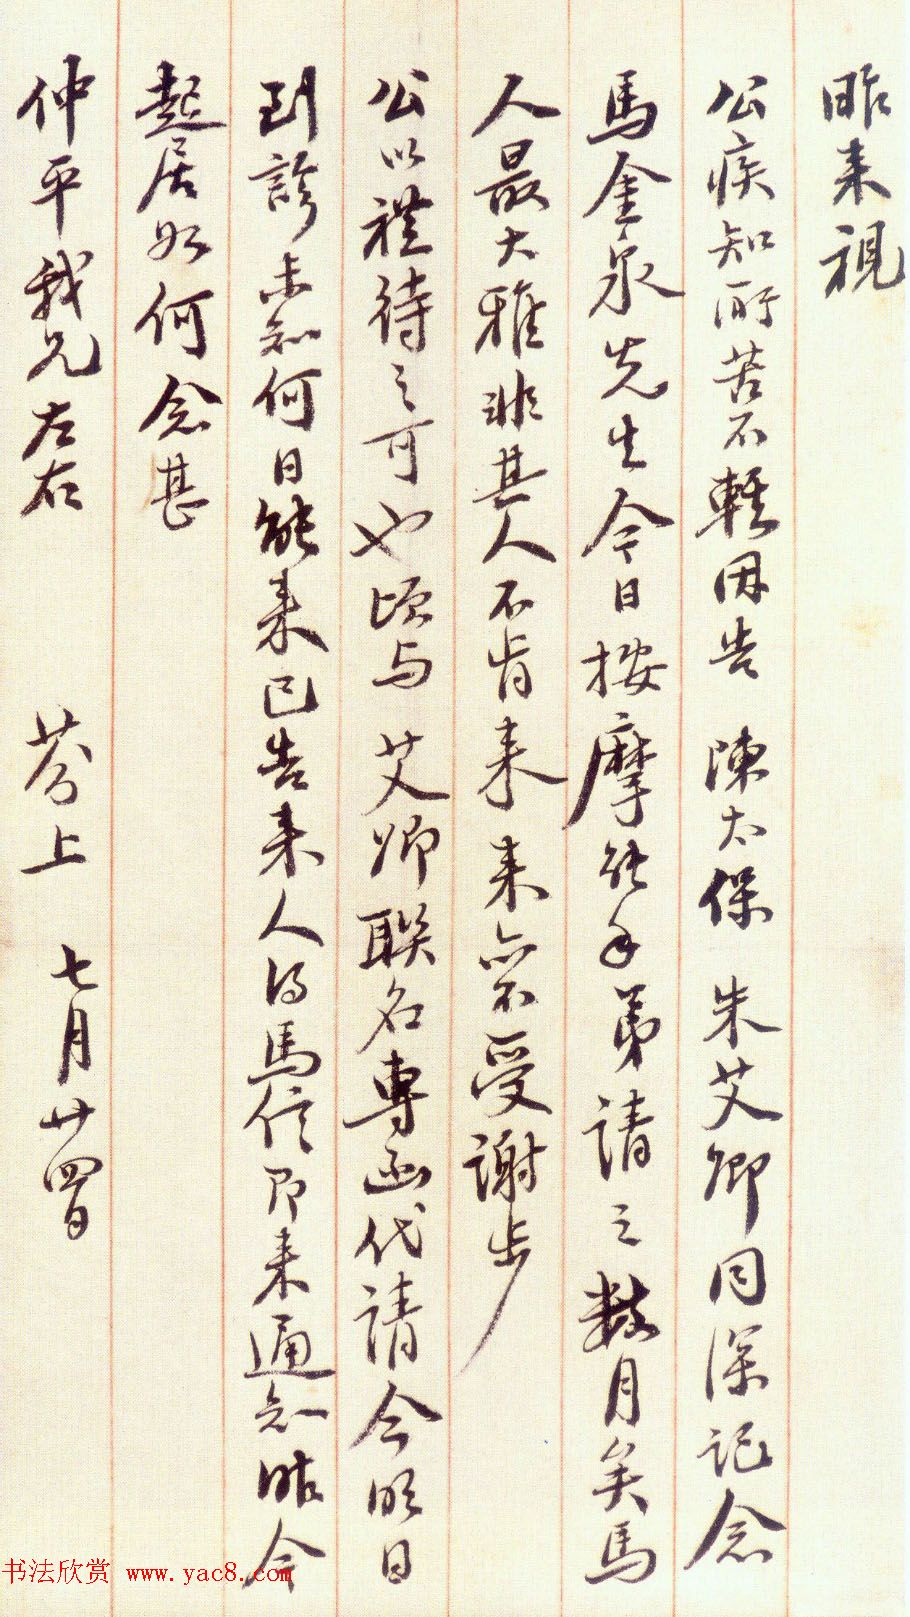 昨来視
公疾知所苦不輕因告 陳太保 朱艾卿同深記念
馬金泉先生今日按摩能手弟請之數月矣馬
人最大雅非其人不肯来来亦不受謝步
公以禮待之可也頃与 艾卿聯名專函代請今明日
到診未知何日能来已告来人得馬信即来通知昨今
起居如何念甚
仲平我兄左右 芬上 七月廿四日
书法欣赏 www.yac8.com